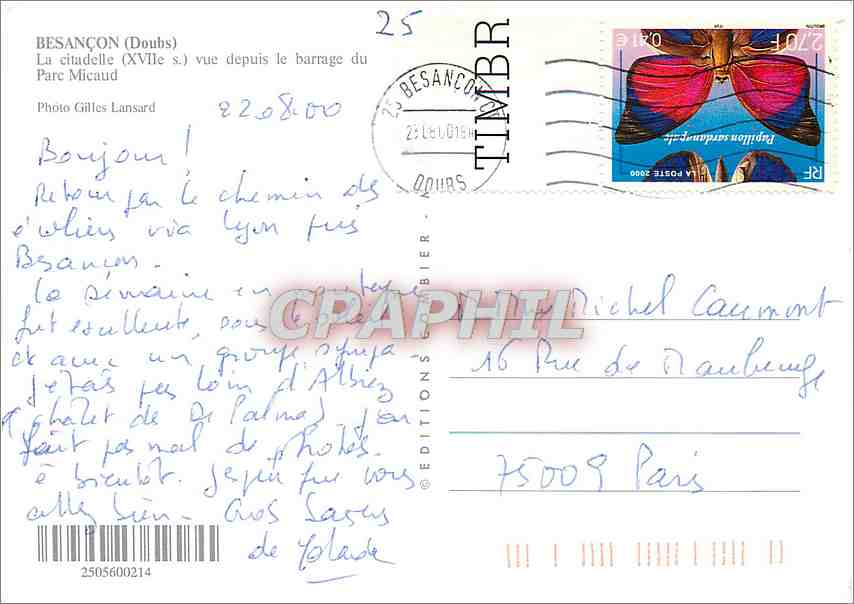 BESANÇON (Doubs)
La citadelle (XVIIe s.) vue depuis le barrage du
Parc Micaud
Photo Gilles Lansard
25
22.08.00
Bonjour !
Retour par le chemin des
écoliers via Lyon puis
Besançon.
La semaine en
fut excellente, sous le
et avec un groupe sympa.
J'étais pas loin d'Albiez
(chalet de De Palmas). J'en
fait pas mal de photos.
à bientôt. J'espère que vous
allez bien - Gros baisers
de Yolande
2505600214
© EDITIONS COMBIER -
25 BESANCON
DOUBS
TIMBR
2,70 F
0,41 €
Papillon sardanapale
RF
LA POSTE 2000
CPAPHIL
Michel Caumont
16 Rue de Maubeuge
75009 Paris